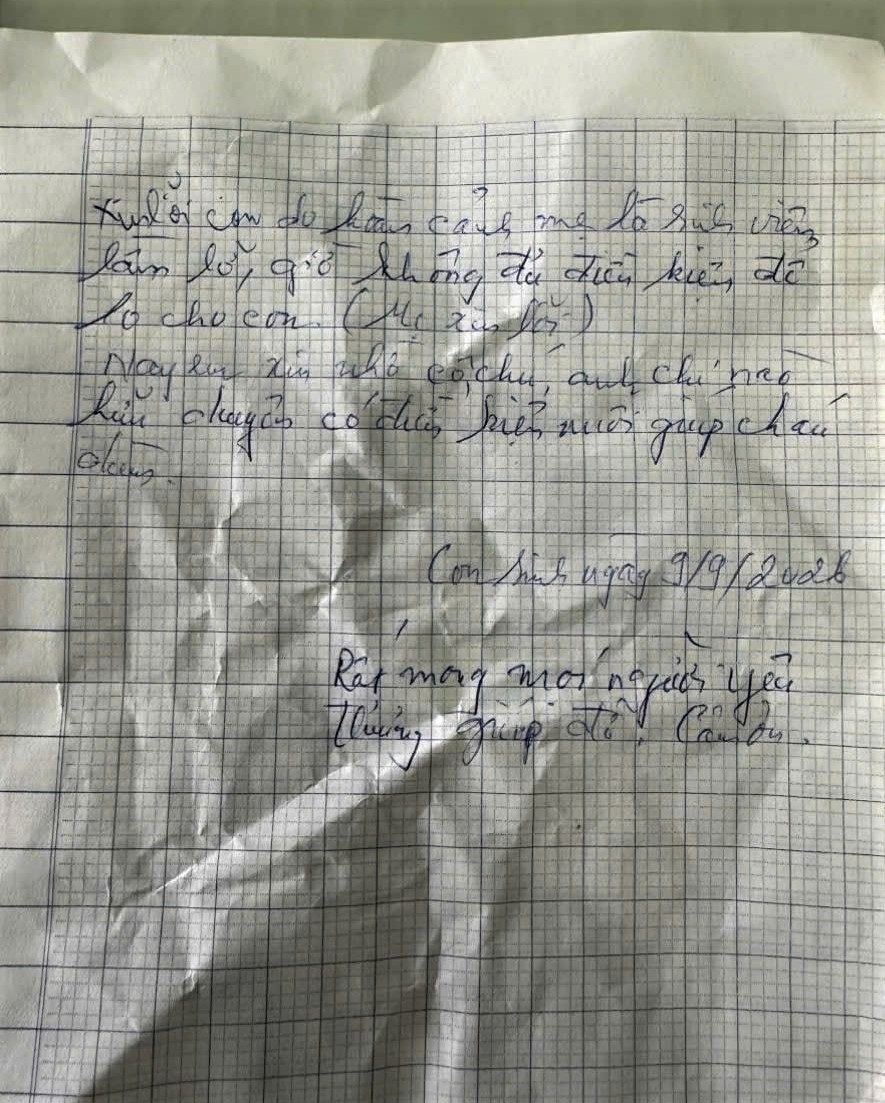 Xin lỗi con do hoàn cảnh mẹ là sinh viên
lầm lỡ, giờ không đủ điều kiện để
lo cho con. (Mẹ xin lỗi)
Nay em xin nhờ cô, chú, anh chị nào
hữu duyên có điều kiện nuôi giúp cháu
Con sinh ngày 9/9/202
Rất mong mọi người yêu
thương giúp đỡ. Cảm ơn.